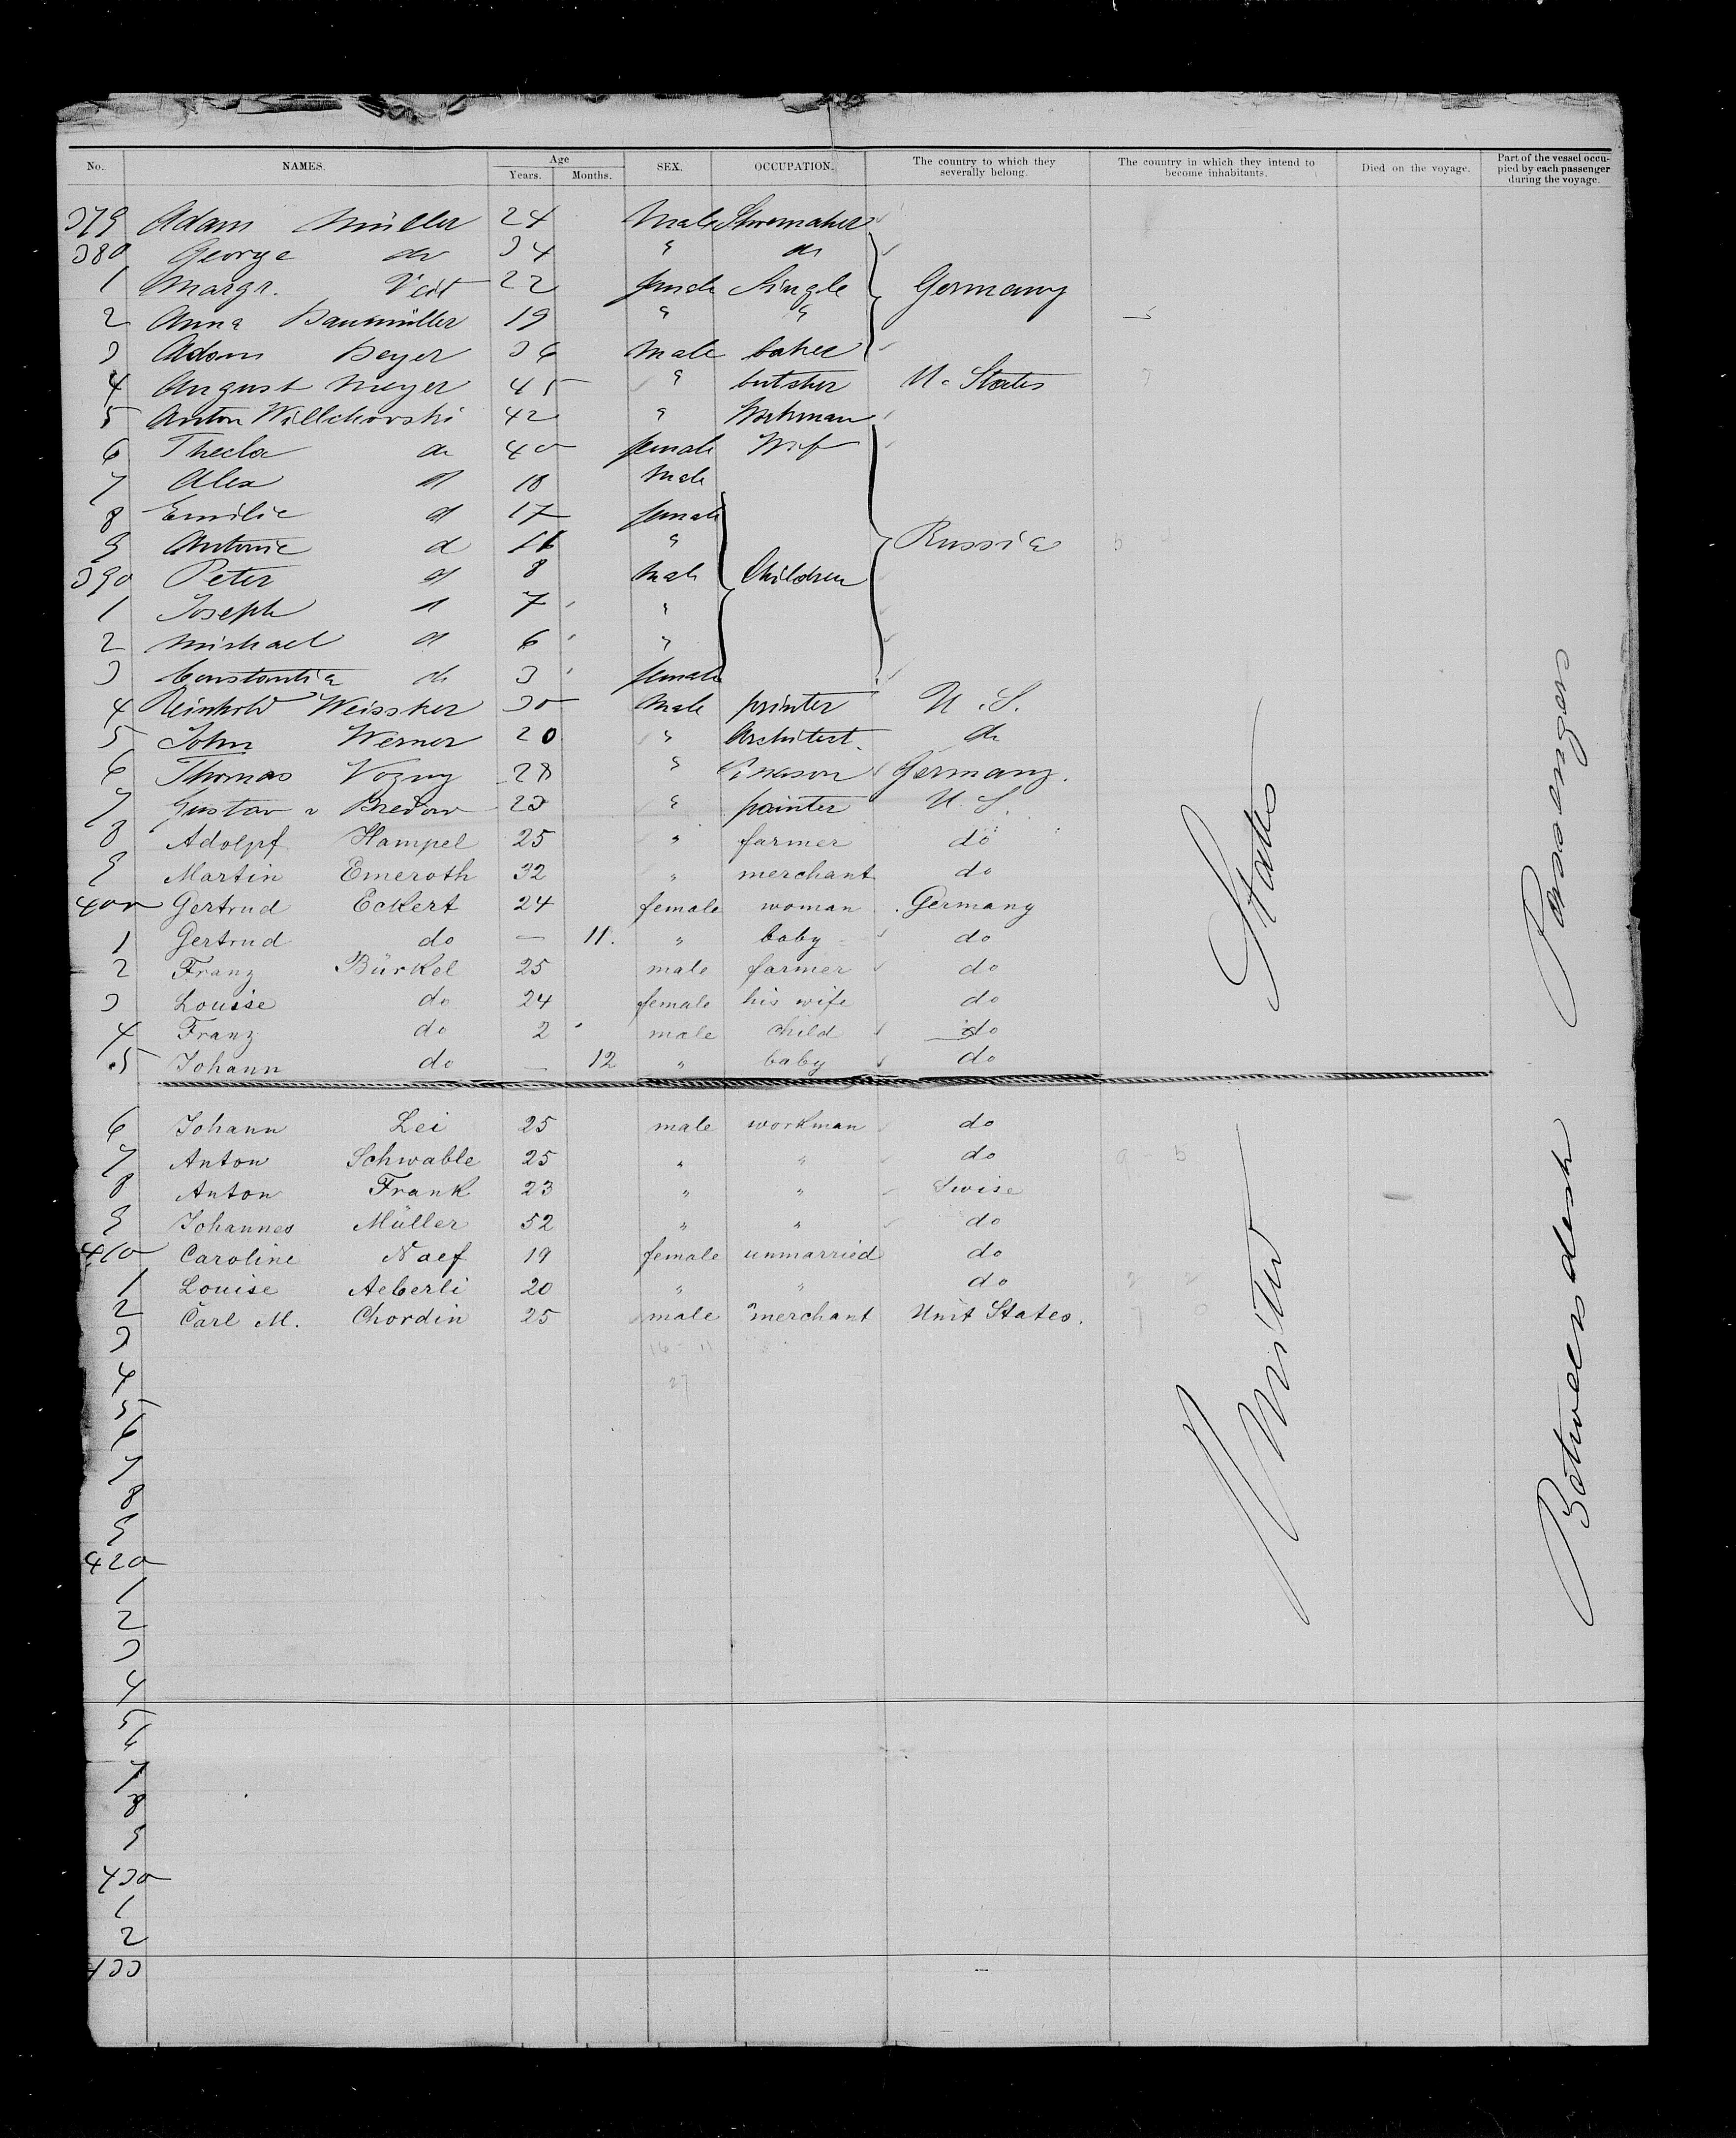 No. NAMES. Age Years. Months. SEX. OCCUPATION. The country to which they severally belong. The country in which they intend to become inhabitants. Died on the voyage. Part of the vessel occupied by each passenger during the voyage.
379 Adam Müller 24 Male Shoemaker
380 George do 34 " do
1 Margr. Veit 22 female Single Germany
2 Anna Baumüller 19 " "
3 Adam Beyer 36 Male baker
4 August Meyer 45 " butcher U. States
5 Anton Willchovski 42 " Workman
6 Thecla do 40 female Wife
7 Alex d 18 Male
8 Emilie d 17 female
9 Antonie d 11 " Russia
390 Peter d 8 Male Children
1 Joseph d 7 "
2 Michael d 6 "
3 Constantia do 3 female
4 Reinhold Weissker 30 Male printer U. S.
5 John Werner 20 " Architect. do
6 Thomas Vozny 28 " Germany.
7 Gustav v Bredow 23 " painter U. S.
8 Adolpf Hampel 25 " farmer do
9 Martin Emeroth 32 " merchant do
400 Gertrud Eckert 24 female woman Germany
1 Gertrud do — 11. " baby do
2 Franz Bürkel 25 male farmer do
3 Louise do 24 female his wife do
4 Franz do 2 male child do
5 Johann do — 12 " baby do
6 Johann Lei 25 male workman do
7 Anton Schwable 25 " " do
8 Anton Frank 23 " " Swise
9 Johannes Müller 52 " " do
410 Caroline Naef 19 female unmarried do
1 Louise Aeberli 20 " " do
2 Carl M. Chordin 25 male merchant Unit States.
3
4
5
6
7
8
9
420
1
2
3
4
5
6
7
8
9
430
1
2
433
United States
Between desk Passengers